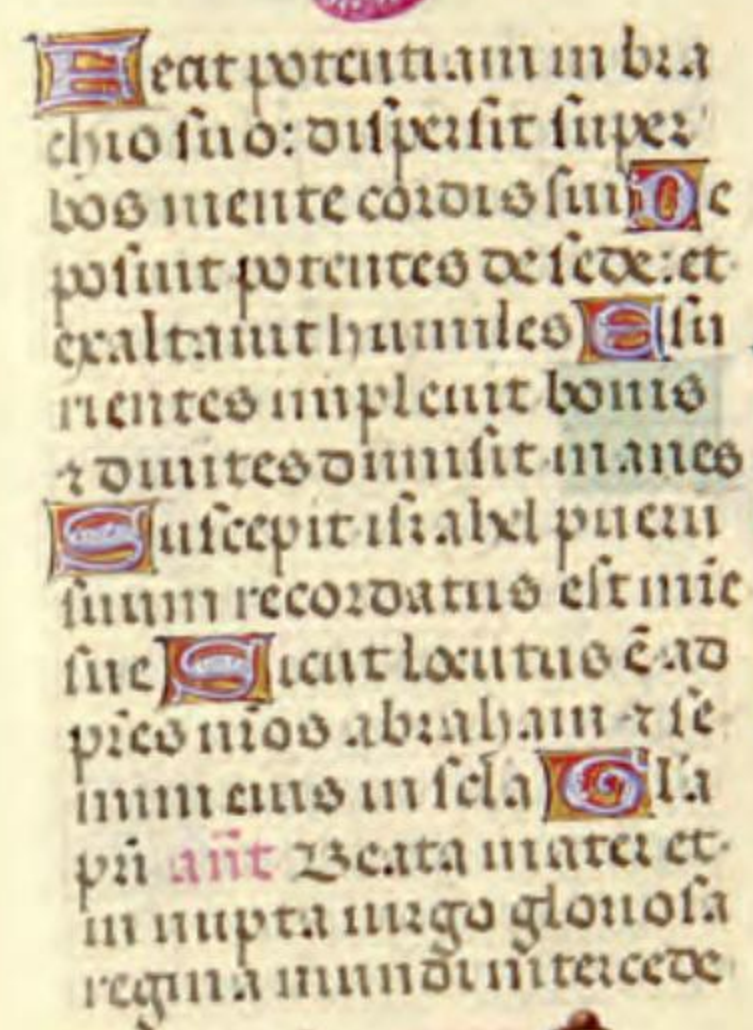 Feat potentiam in bra
chio suo: dispersit super
bos mente cordis sui De
posuit potentes de sede: et
exaltauit humiles Esu
rientes impleuit bonis
⁊ diuites dimisit inanes
Suscepit israhel pueru
suum recordatus est mie
sue Sicut locutus ē ad
pr̄es nr̄os abraham ⁊ se
mini eius in scl̄a Gl'a
pr̄i añt Beata mater et
in nupta uirgo gloriosa
regina mundi intercede